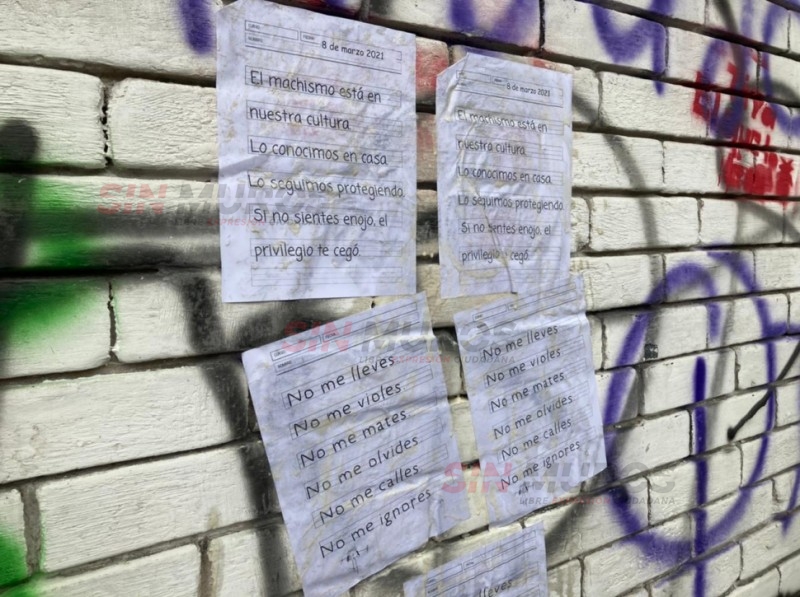 8 de marzo 2021
El machismo está en
nuestra cultura.
Lo conocimos en casa.
Lo seguimos protegiendo.
Si no sientes enojo, el
privilegio te cegó.
8 de marzo 2021
El machismo está en
nuestra cultura.
Lo conocimos en casa.
Lo seguimos protegiendo.
Si no sientes enojo, el
privilegio te cegó.
No me lleves
No me violes
No me mates
No me olvides
No me calles
No me ignores
No me lleves
No me violes
No me mates
No me olvides
No me calles
No me ignores
lleves
SIN MUROS
LIBRE EXPRESIÓN CIUDADANA
SIN MUROS
LIBRE EXPRESIÓN CIUDADANA
SIN MUROS
LIBRE EXPRESIÓN CIUDADANA